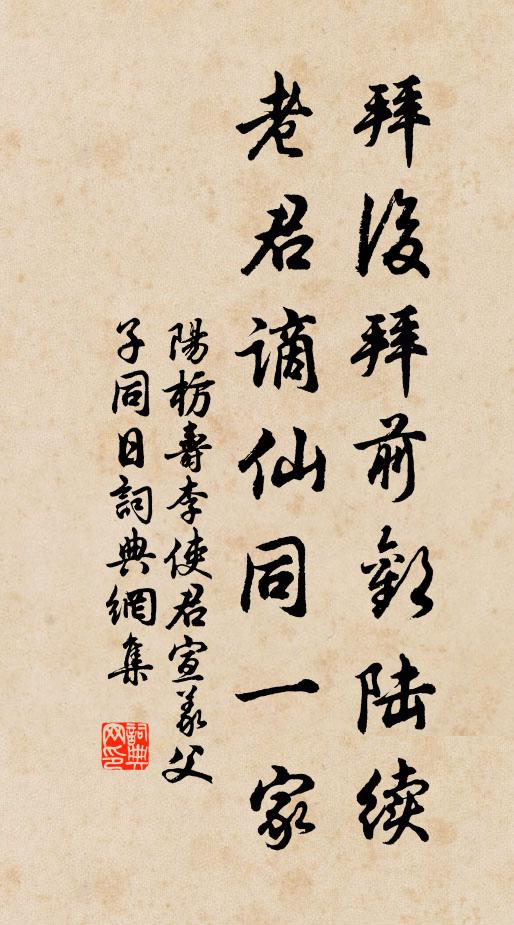 拜後拜前歡陆续
老君谪仙同一家
陽枋壽李使君宣義父
子同日詞典網集
詞典网印